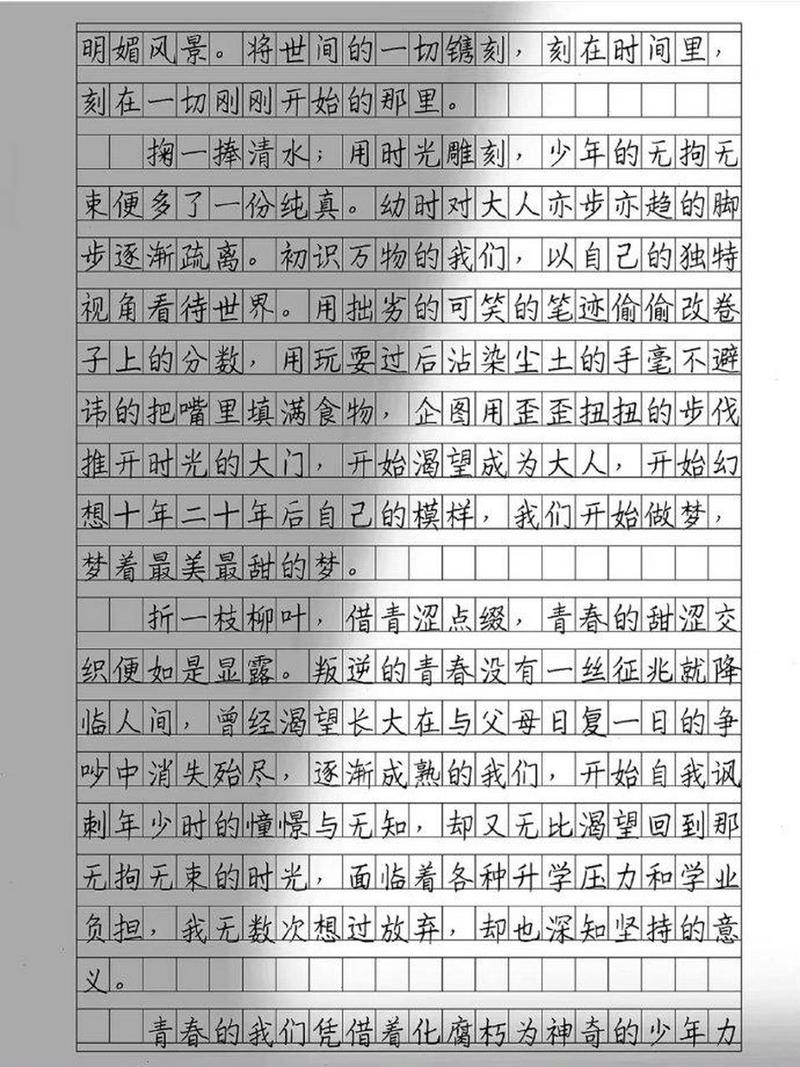 明媚风景。将世间的一切镌刻，刻在时间里，
刻在一切刚刚开始的那里。
掬一捧清水；用时光雕刻，少年的无拘无
束便多了一份纯真。幼时对大人亦步亦趋的脚
步逐渐疏离。初识万物的我们，以自己的独特
视角看待世界。用拙劣的可笑的笔迹偷偷改卷
子上的分数，用玩耍过后沾染尘土的手毫不避
讳的把嘴里填满食物，企图用歪歪扭扭的步伐
推开时光的大门，开始渴望成为大人，开始幻
想十年二十年后自己的模样，我们开始做梦，
梦着最美最甜的梦。
折一枝柳叶，借青涩点缀，青春的甜涩交
织便如是显露。叛逆的青春没有一丝征兆就降
临人间，曾经渴望长大在与父母日复一日的争
吵中消失殆尽，逐渐成熟的我们，开始自我讽
刺年少时的憧憬与无知，却又无比渴望回到那
无拘无束的时光，面临着各种升学压力和学业
负担，我无数次想过放弃，却也深知坚持的意
义。
青春的我们凭借着化腐朽为神奇的少年力